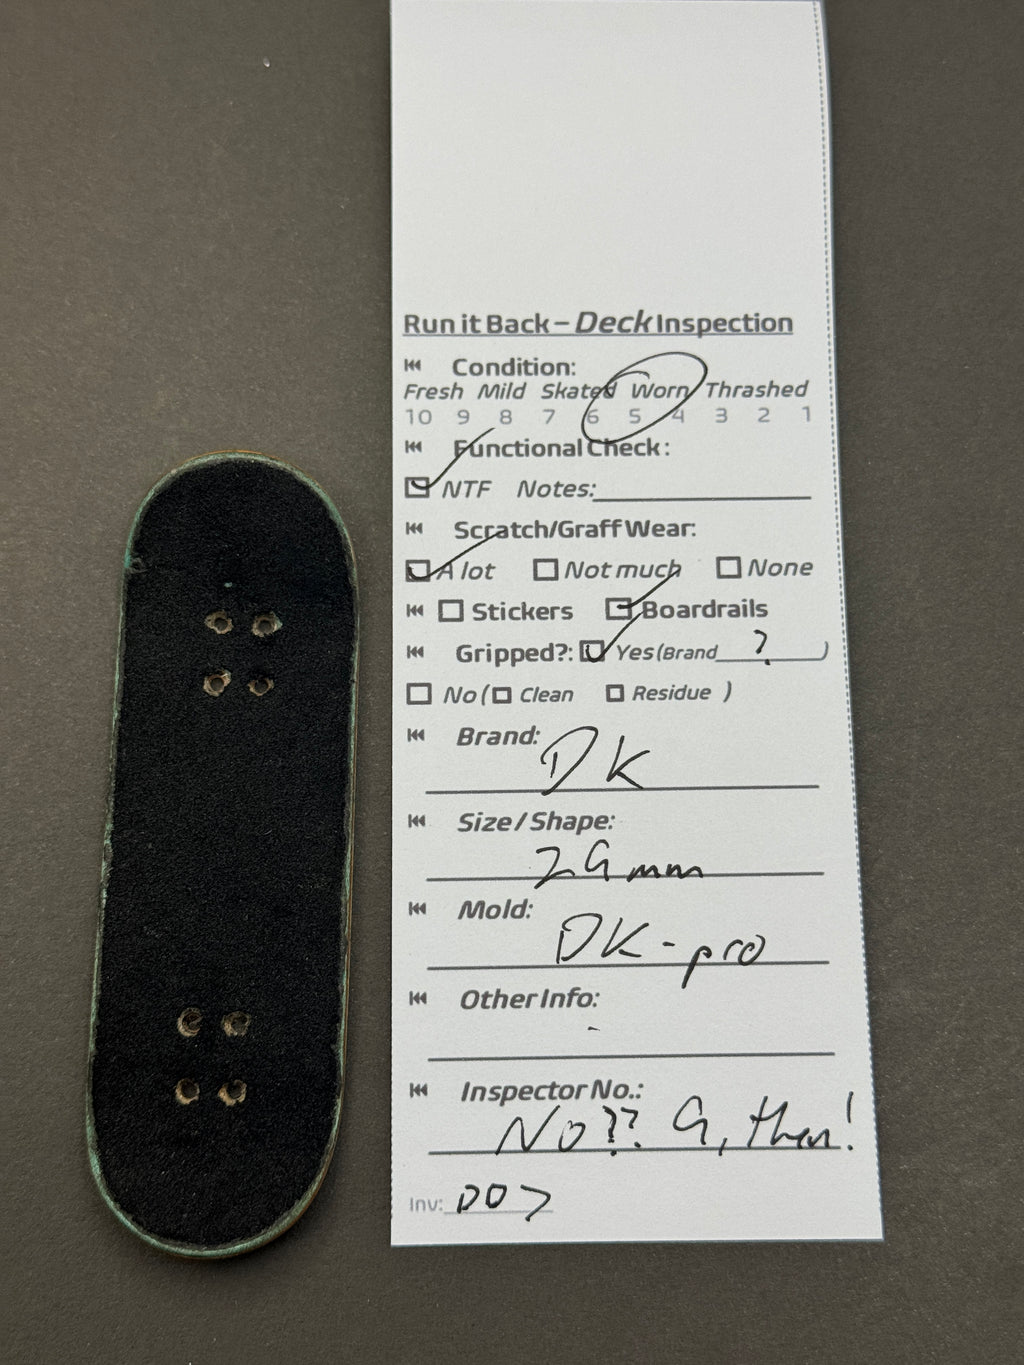 Run it Back – Deck Inspection
Condition:
Fresh Mild Skated Worn Thrashed
10 9 8 7 6 5 4 3 2 1
Functional Check:
NTF Notes:
Scratch/Graff Wear:
A lot Not much None
Stickers Boardrails
Gripped?: Yes (Brand ? )
No ( Clean Residue )
Brand:
DK
Size / Shape:
29mm
Mold:
DK-pro
Other Info:
-
Inspector No.:
No?? 9, then!
Inv: DO7